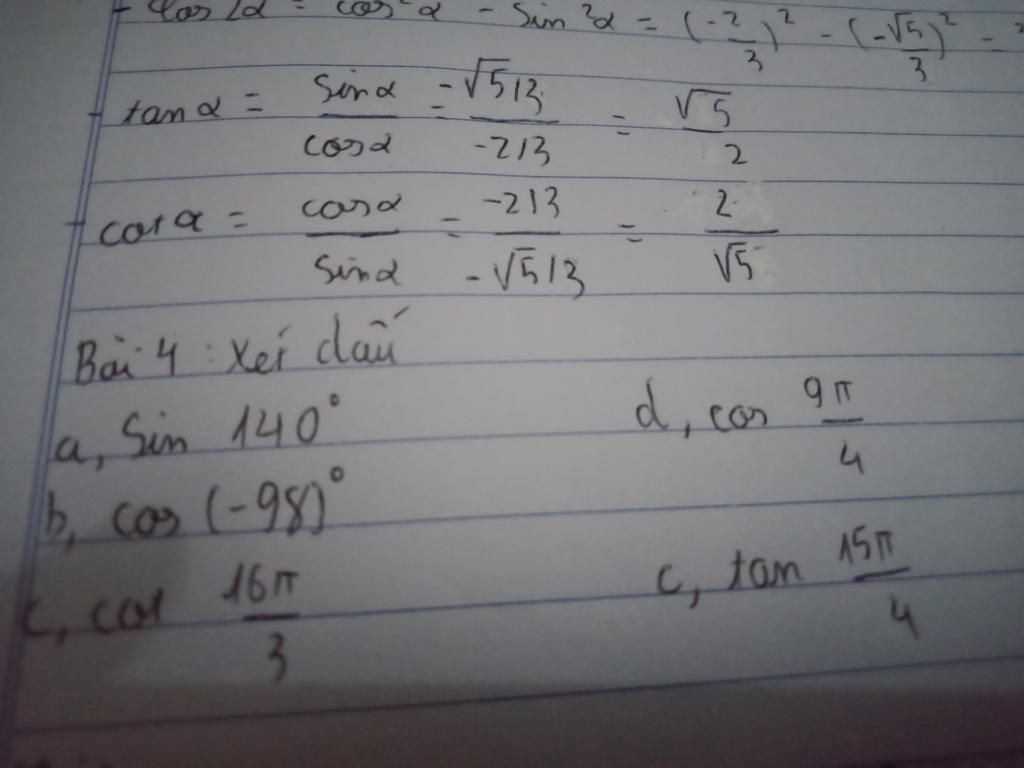 + cos 2α = cos²α - sin²α = (-2/3)² - (-√5/3)² =
+ tan α = sinα/cosα = -√5/3/-2/3 = √5/2
+ cot α = cosα/sinα = -2/3/-√5/3 = 2/√5
Bài 4 : Xét dấu
a, Sin 140°
d, cos 9π/4
b, cos (-98)°
c, cot 16π/3
c, tan 15π/4